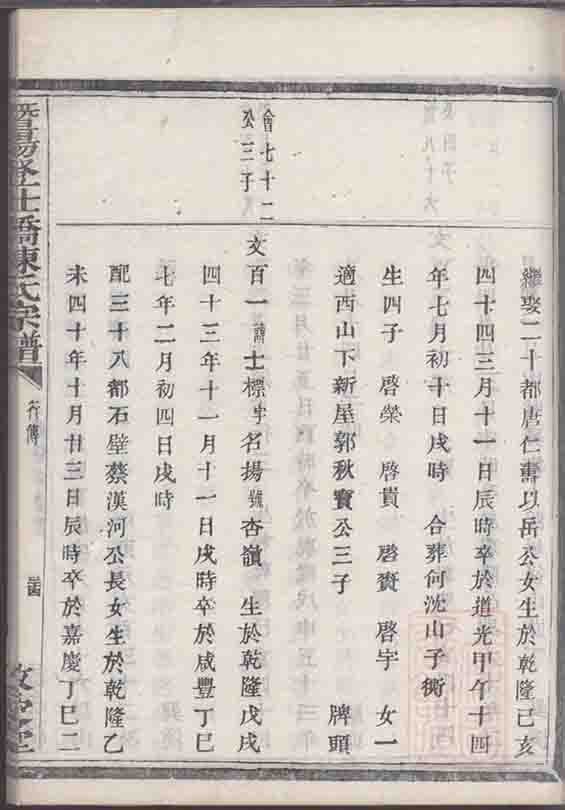 繼娶二十都唐仁壽以岳公女生於乾隆己亥
四十四三月十一日辰時卒於道光甲午十四
年七月初十日戌時 合葬何沈山子衝
生四子 啓榮 啓貴 啓賚 啓宇 女一
適西山下新屋郭秋寳公三子 牌頭
會七十二
公三子
文百一諱士標字名揚號杏嶺 生於乾隆戊戌
四十三年十一月十一日戌時卒於咸豐丁巳
七年二月初四日戌時
配三十八都石壁蔡漢河公長女生於乾隆乙
未四十年十月廿三日辰時卒於嘉慶丁巳二
暨陽登仕橋陳氏宗譜
行傳